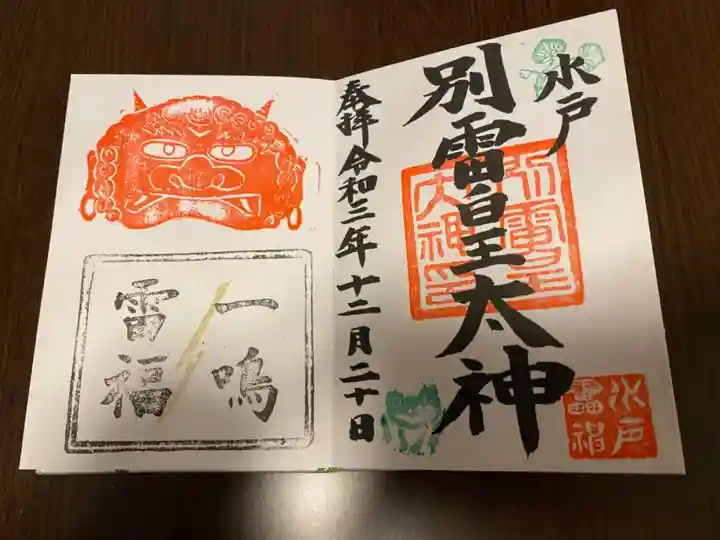 水戸
別雷皇太神
別雷皇
太神印
水戸
雷神
奉拝令和三年十二月二十日
一鳴
雷福